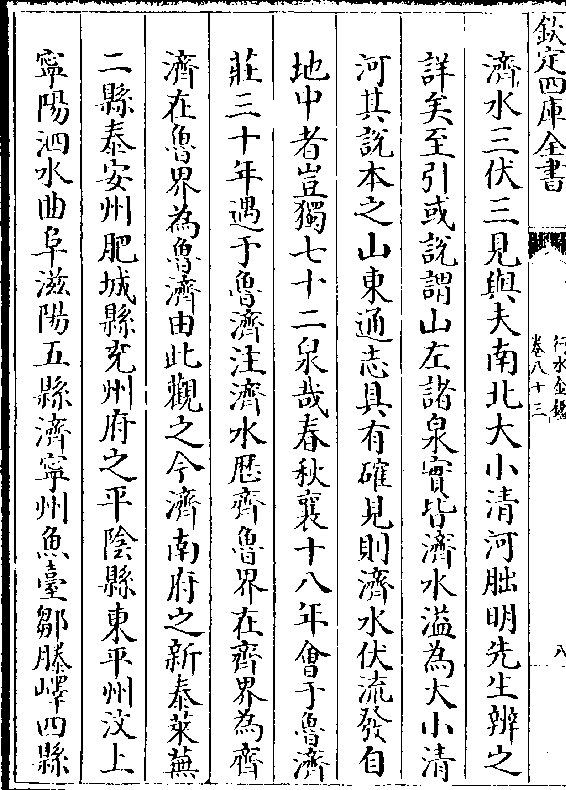 欽定四庫全書
行水金鑑
卷八十三
八
濟水三伏三見與夫南北大小清河朏明先生辨之
詳矣至引或說謂山左諸泉實皆濟水溢為大小清
河其說本之山東通志具有確見則濟水伏流發自
地中者豈獨七十二泉哉春秋襄十八年會于魯濟
莊三十年遇于魯濟注濟水歴齊魯界在齊界為齊
濟在魯界為魯濟由此觀之今濟南府之新泰萊蕪
二縣泰安州肥城縣兖州府之平陰縣東平州汶上
寧陽泗水曲阜滋陽五縣濟寧州魚臺鄒滕嶧四縣